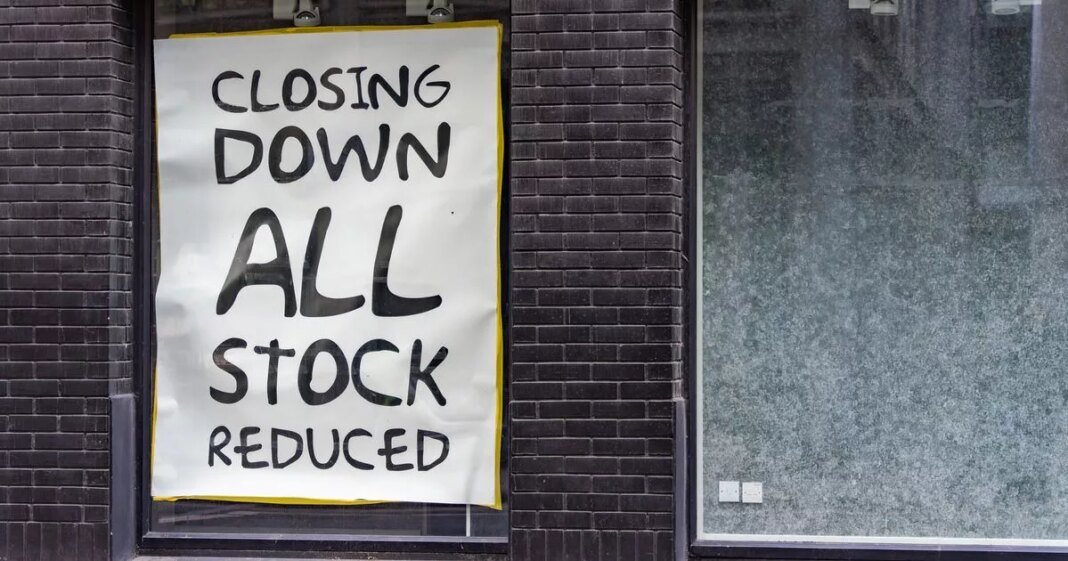 CLOSING
DOWN
ALL
STOCK
REDUCED